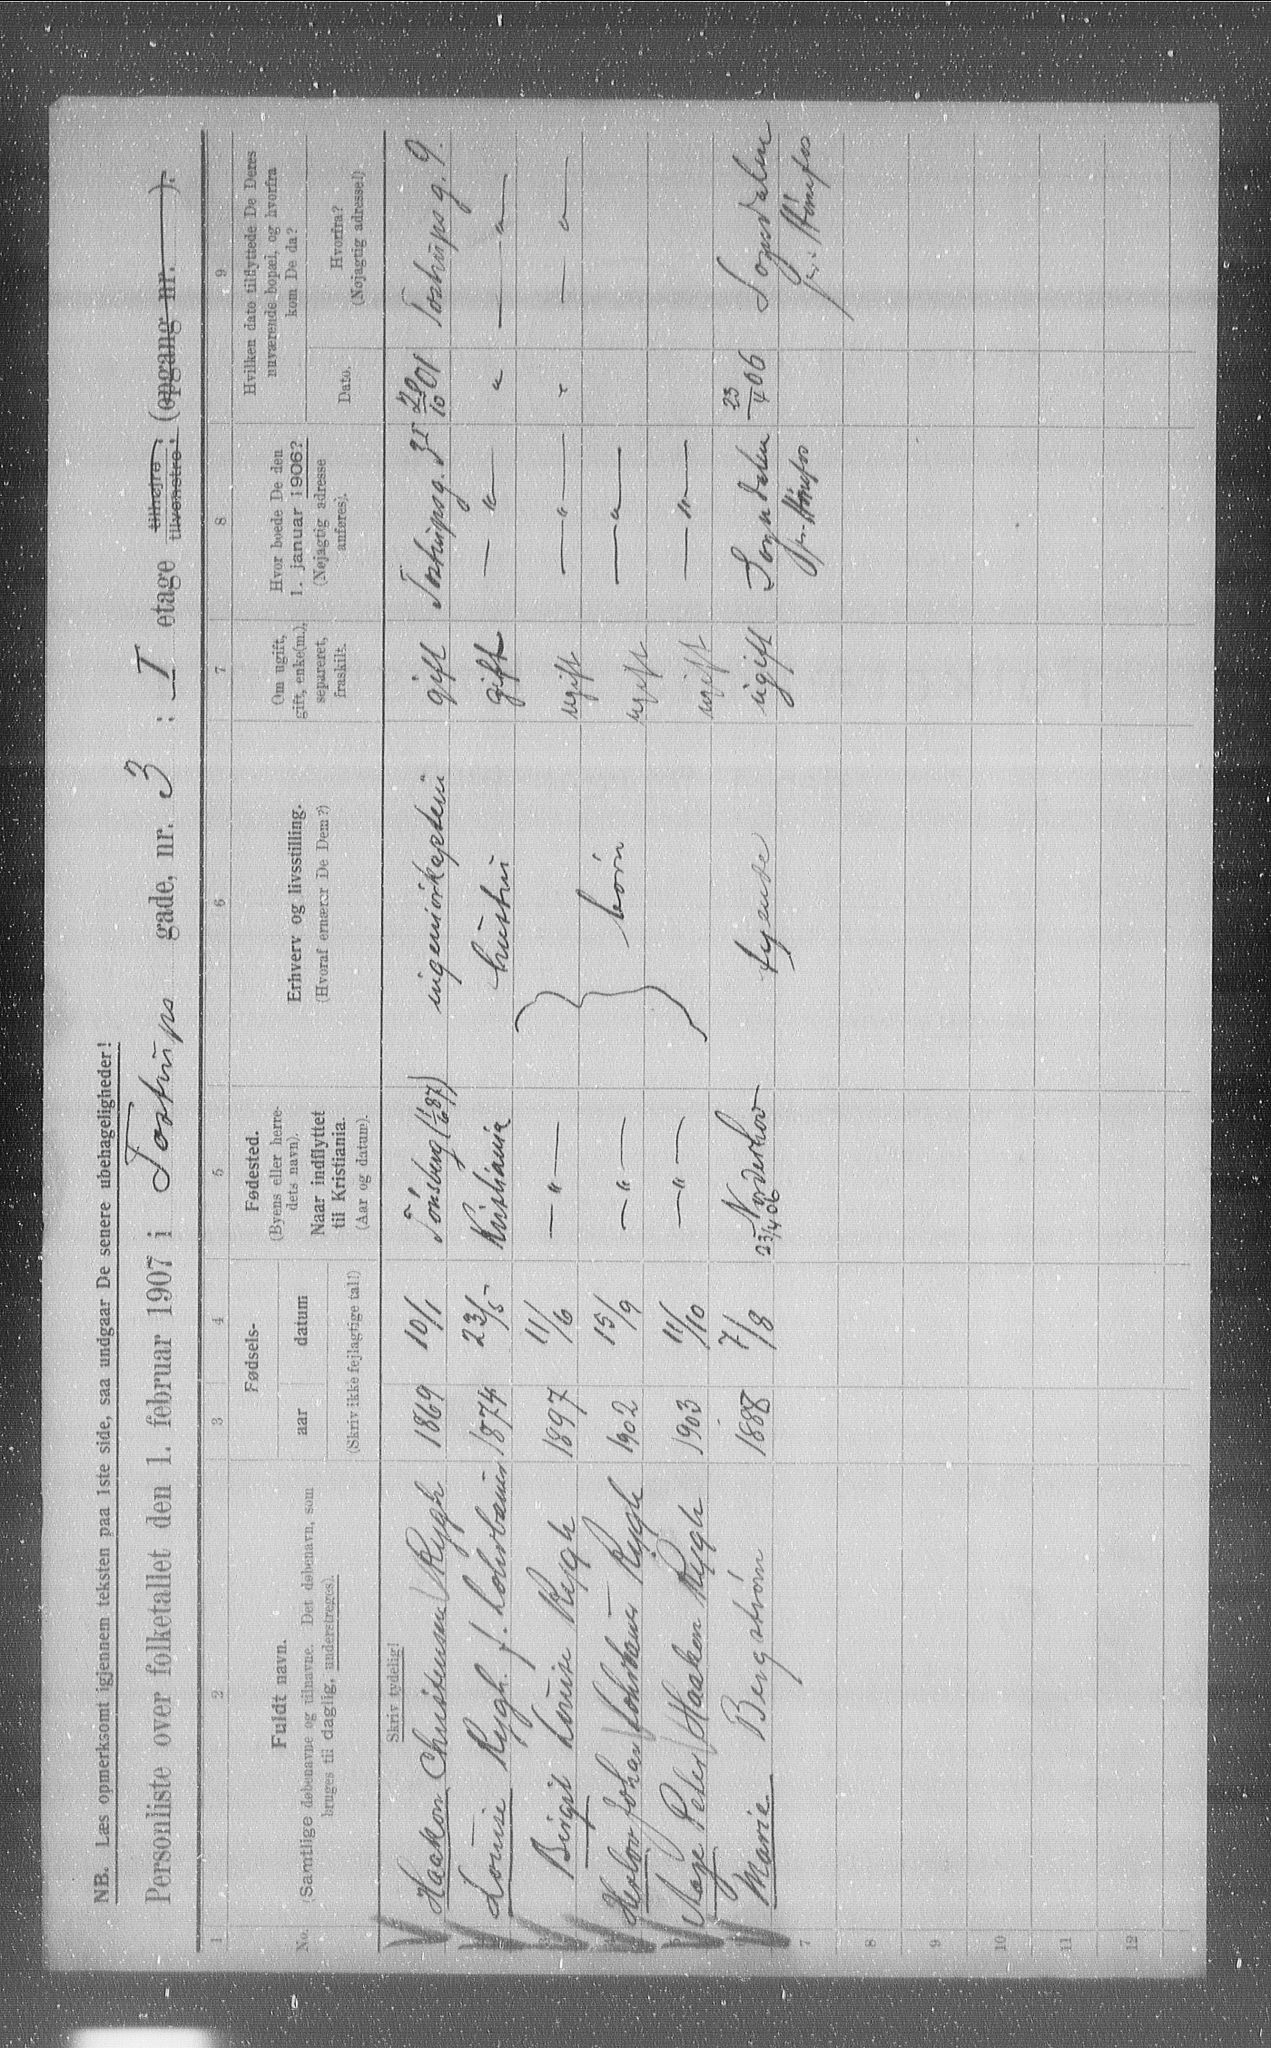 NB. Læs opmerksomt igjennem teksten paa 1ste side, saa undgaar De senere ubehageligheder!
Personliste over folketallet den 1. februar 1907 i Tostrups gade, nr. 3 : I etage tilhøjre, tilvenstre, (opgang nr. ).
1 2 3 4 5 6 7 8 9
No.
Fuldt navn.
(Samtlige døbenavne og tilnavne. Det døbenavn, som
bruges til daglig, understreges).
Fødsels-
aar datum
(Skriv ikke fejlagtige tal!)
Fødested.
(Byens eller herre-
dets navn).
Naar indflyttet
til Kristiania.
(Aar og datum).
Erhverv og livsstilling.
(Hvoraf ernærer De Dem?)
Om ugift,
gift, enke(m.),
separeret,
fraskilt.
Hvor boede De den
1. januar 1906?
(Nøjagtig adresse
anføres).
Hvilken dato tilflyttede De Deres
nuværende bopæl, og hvorfra
kom De da?
Dato.
Hvorfra?
(Nøjagtig adresse!)
Skriv tydelig!
Haakon Christensen Rygh 1869 10/1 Tönsberg (1/6 87) ingeniörkaptein gift Tostrupsg. 3I 20/10 01 Tostrupsg. 9.
Louise Rygh f. Lohrbauer 1874 23/5 Kristiania hustru gift — " — " — " —
3 Birgit Louise Rygh 1897 11/6 — " — börn ugift — " — " — " —
Herlov Johan Lohrbauer Rygh 1902 15/9 — " — ugift — " —
Aage Peter Haaken Rygh 1903 11/10 — " — ugift — " —
Marie Bergström 1888 7/8 Norderhov 23/4 06 tyende ugift Sogndalen pr. Hönefos 23/4 06 Sogndalen pr. Hönefos
7
8
9
10
11
12